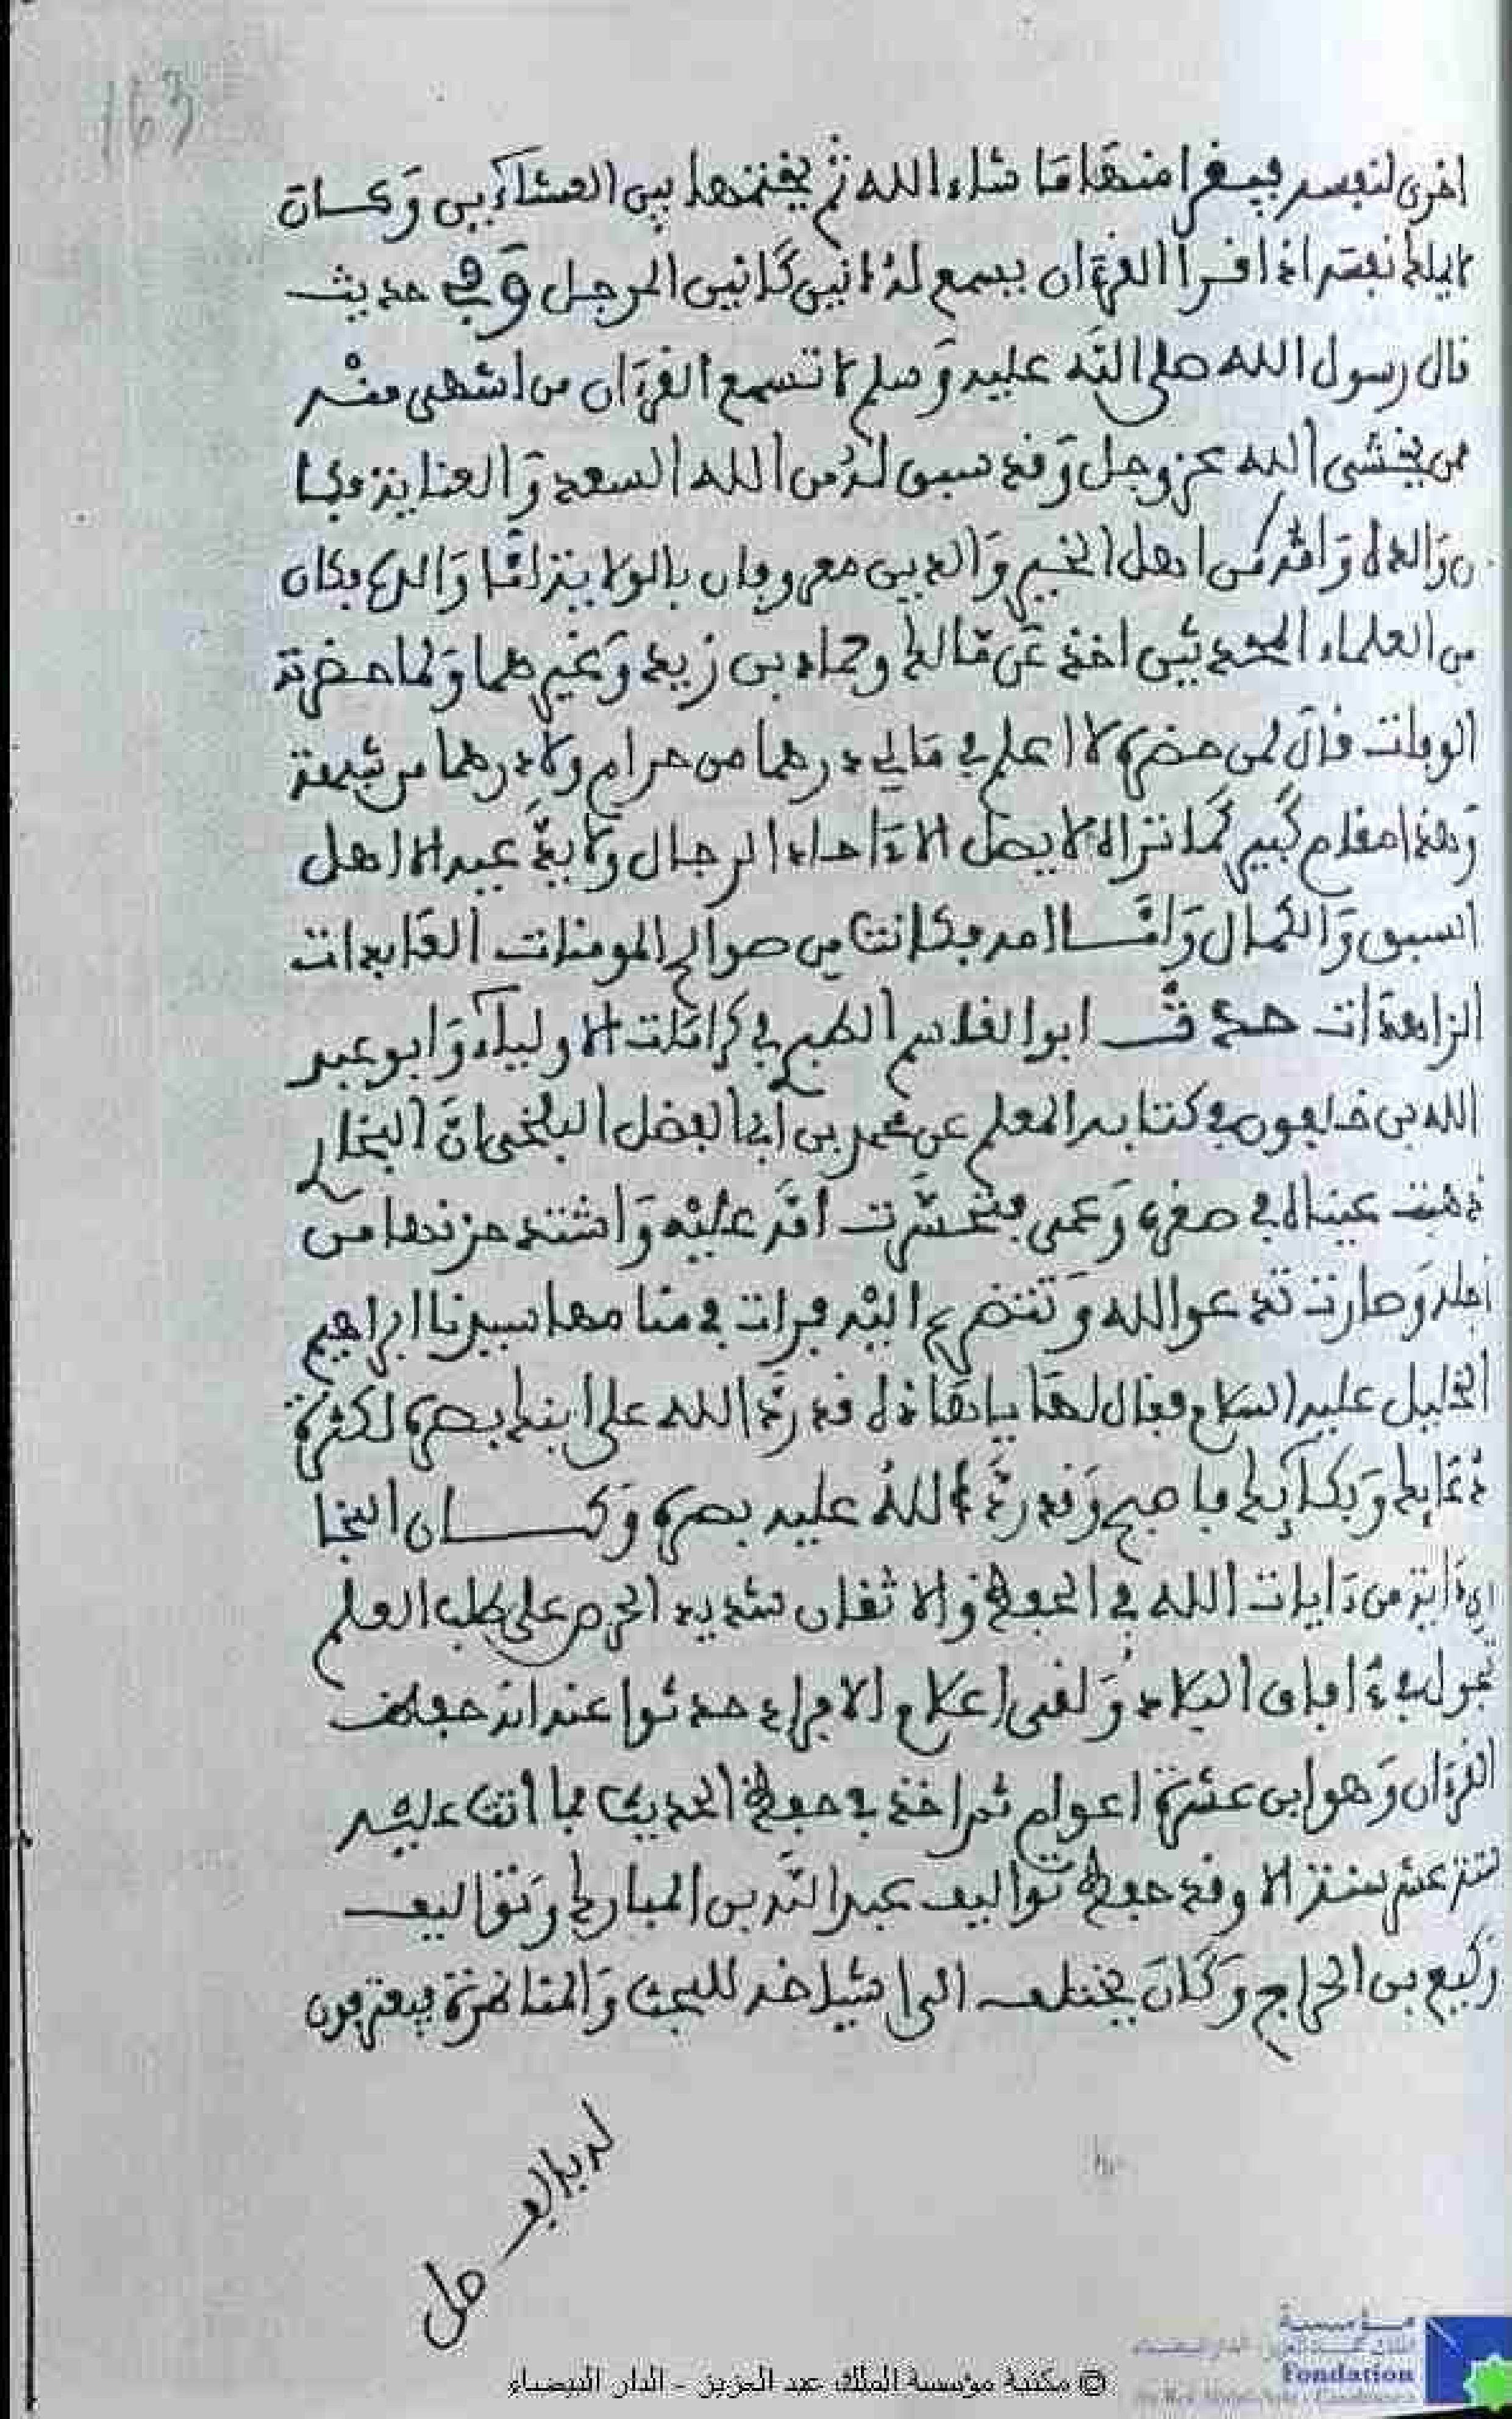 163
اخرى لنفسه فيقرا منها ما شاء الله ثم يختمها بين العشاءين وكان
لا يملك نفسه اذا قرا القرءان يسمع له انين كانين المرجل وفي حديث
قال رسول الله صلى الله عليه وسلم لا تسمع القرءان من اشهى منه
ممن يخشى الله عز وجل وقد سبق له من الله السعد والعناية فكا
ن والده وامه من اهل الخير والدين معروفان بالولاية اما والده فكان
من العلماء المحدثين اخذ عن مالك وحماد بن زيد وغيرهما ولما حضرته
الوفات قال لمن حضره لا اعلم في مالي درهما من حرام ولا درهما من شبهة
وهذا مقام كبير كما تراه لا يصل الا ءاحاد الرجال ولا فيه الا اهل
السبق والكمال واما امه فكانت من صوالح المومنات العابدات
الزاهدات حدث ابو القاسم الطبري في كرامات الاولياء وابو عبد
الله بن خلفون في كتابه المعلم عن محمد بن ابي الفضل البلخي ان البخاري
ذهبت عيناه في صغره وعمي فتحسرت امه عليه واشتد حزنها من
اجله وصارت تدعو الله وتتضرع اليه فرات في منامها سيدنا ابراهيم
الخليل عليه السلام فقال لها يا هاذه قد رد الله على ابنك بصره لكثرة
دعائك وبكائك فاصبح وقد رد الله عليه بصره وكان البخا
ري ءاية من ءايات الله في الحفظ والاتقان شديد الحرص على طلب العلم
يجول في ءافاق البلاد ولقي اعلام الافراد حدثوا عنه انه حفظ
القرءان وهو ابن عشرة اعوام ثم اخذ في حفظ الحديث فما اتت عليه
ستة عشر سنة الا وقد حفظ تواليف عبد الله بن المبارك وتواليف
وكيع بن الجراح وكان يختلف الى اشياخه للبحث والمناظرة فيعترفون
له بالفضل
© مكتبة مؤسسة الملك عبد العزيز - الدار البيضاء
مؤسسة
Fondation